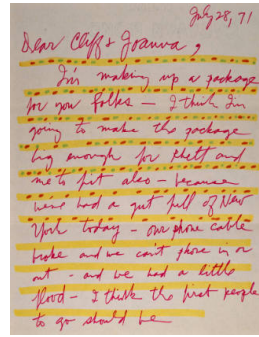 July 28, 71
Dear Cliff & Joanna,
I'm making up a package
for you folks — I think I'm
going to make the package
big enough for Rhett and
me to fit also — because
weve had a gut full of New
York today — our phone cable
broke and we cant phone in or
out — and we had a little
flood — I think the first people
to go should be